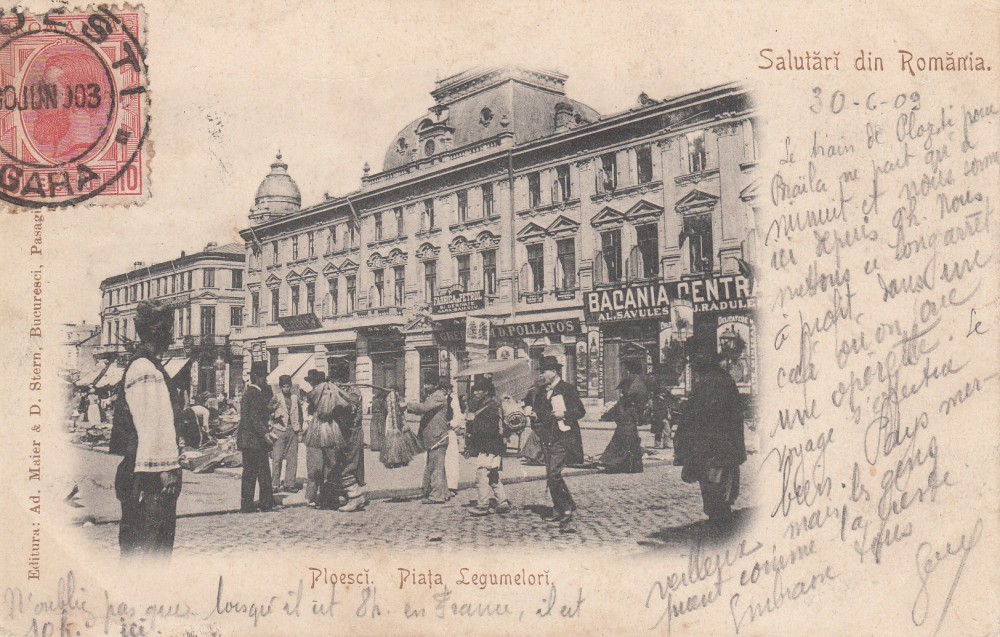 PLOESTI
30 JUN 903
GARA
10
Salutări din România.
30-6-03
Le train de Plozti pour
Braïla ne part qu'à
minuit et nous sommes
ici depuis 9h. Nous
mettons ce long arrêt
à profit, dans un
café où on crie
une opérette. Le
voyage s'effectue
bien. Pays mer-
veilleux mais les gens
puent comme la peste
Embrasse tous
FABRICA PETROL
D. POLLATOS
BACANIA CENTR
AL. SAVULES J. RADULE
Editura: Ad. Maier & D. Stern, Bucuresci, Pasagi
Ploescĭ. Piața Legumelorĭ.
N'oublie pas que lorsqu'il est 8h. en France, il est
10h. ici.